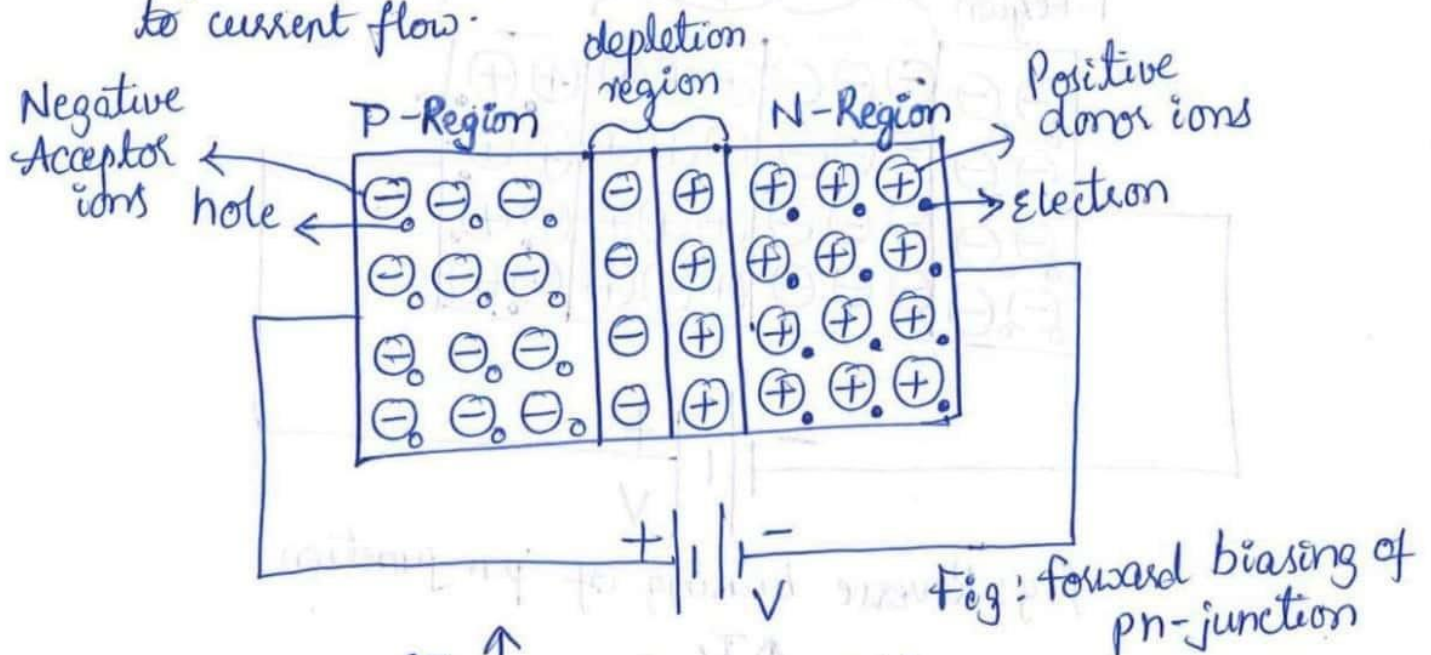 to current flow.
depletion
region
Negative
Acceptor
ions
hole
P-Region
N-Region
Positive
donor ions
Election
+
-
V
Fig: forward biasing of
pn-junction